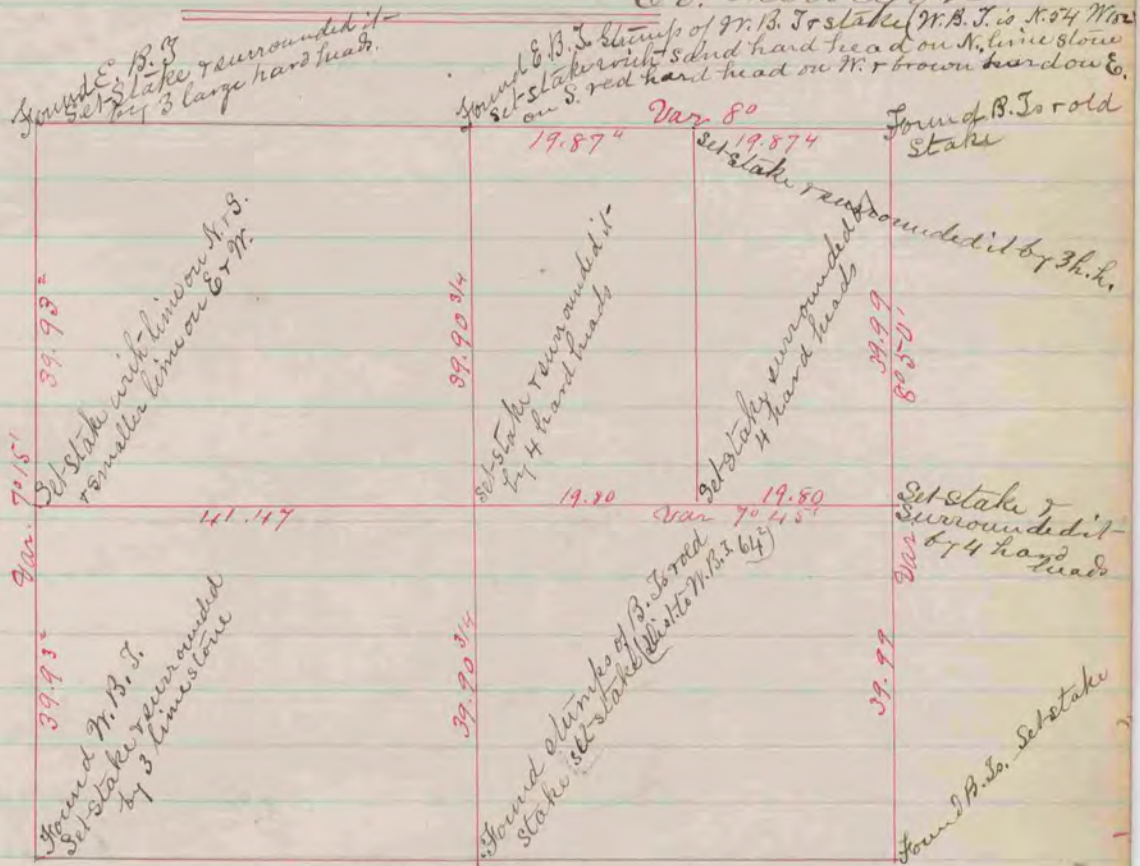 Found E. B. T
Set Stake & surrounded it
by 3 large hard heads.
Found E B. T. Stump of W. B. T & stake (W. B. T. is N. 54 W
Set stake with sand hard head on N, lime stone
on S. red hard head on W. & brown hard on E.
Var 8°
Found B. Ts & old
Stake
19.87⁴
19.87⁴
Set stake & surrounded it by 3 h. h.
39.93²
Set stake with lime on N. & S.
& smaller lime on E & W.
39.90 3/4
Set stake & surrounded it
by 4 hard heads
Set stake surrounded by
4 hard heads
39.99
8° 50'
Var. 7° 15'
41.47
19.80
19.80
Var 7° 45'
Set stake &
surrounded it
by 4 hard
heads
Var
39.93²
Found W. B. T.
Set stake & surrounded
by 3 lime stone
39.90 3/4
Found stumps of B. Ts & old
stake set stake (dist to W. B. T. 64²)
39.99
Found B. Ts. Set stake